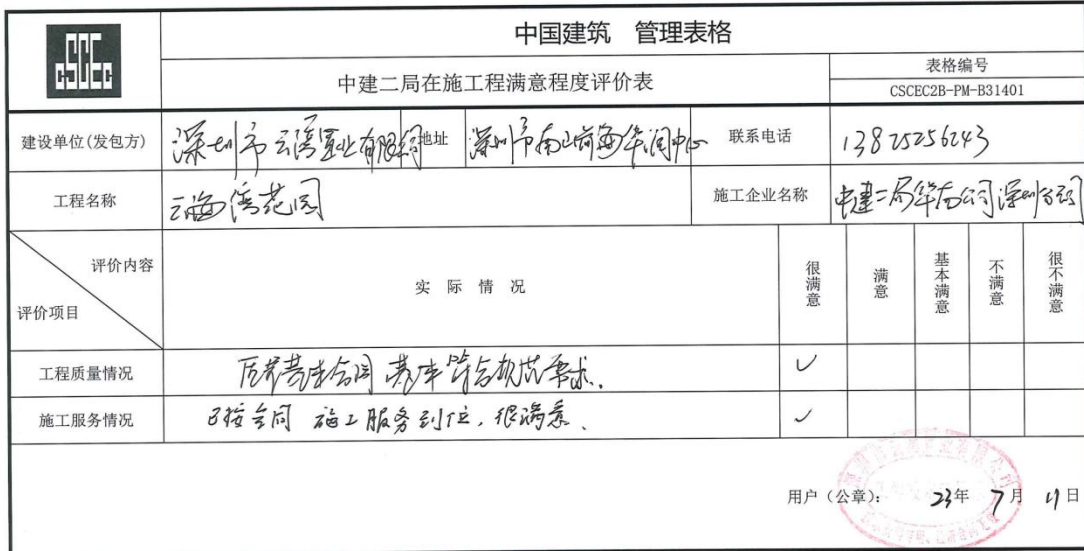 CSCEC
中国建筑 管理表格
中建二局在施工程满意程度评价表
表格编号
CSCEC2B-PM-B31401
建设单位(发包方) 深圳市云湾置业有限公司 地址 深圳市南山前海华润中心 联系电话 13825256243
工程名称 云海湾花园 施工企业名称 中建二局华南公司深圳分公司
评价内容
评价项目
实际情况 很满意 满意 基本满意 不满意 很不满意
工程质量情况 基本合同 基本符合规范要求. ✓
施工服务情况 已按合同 施工服务到位,很满意. ✓
用户(公章): 23年 7月 11日